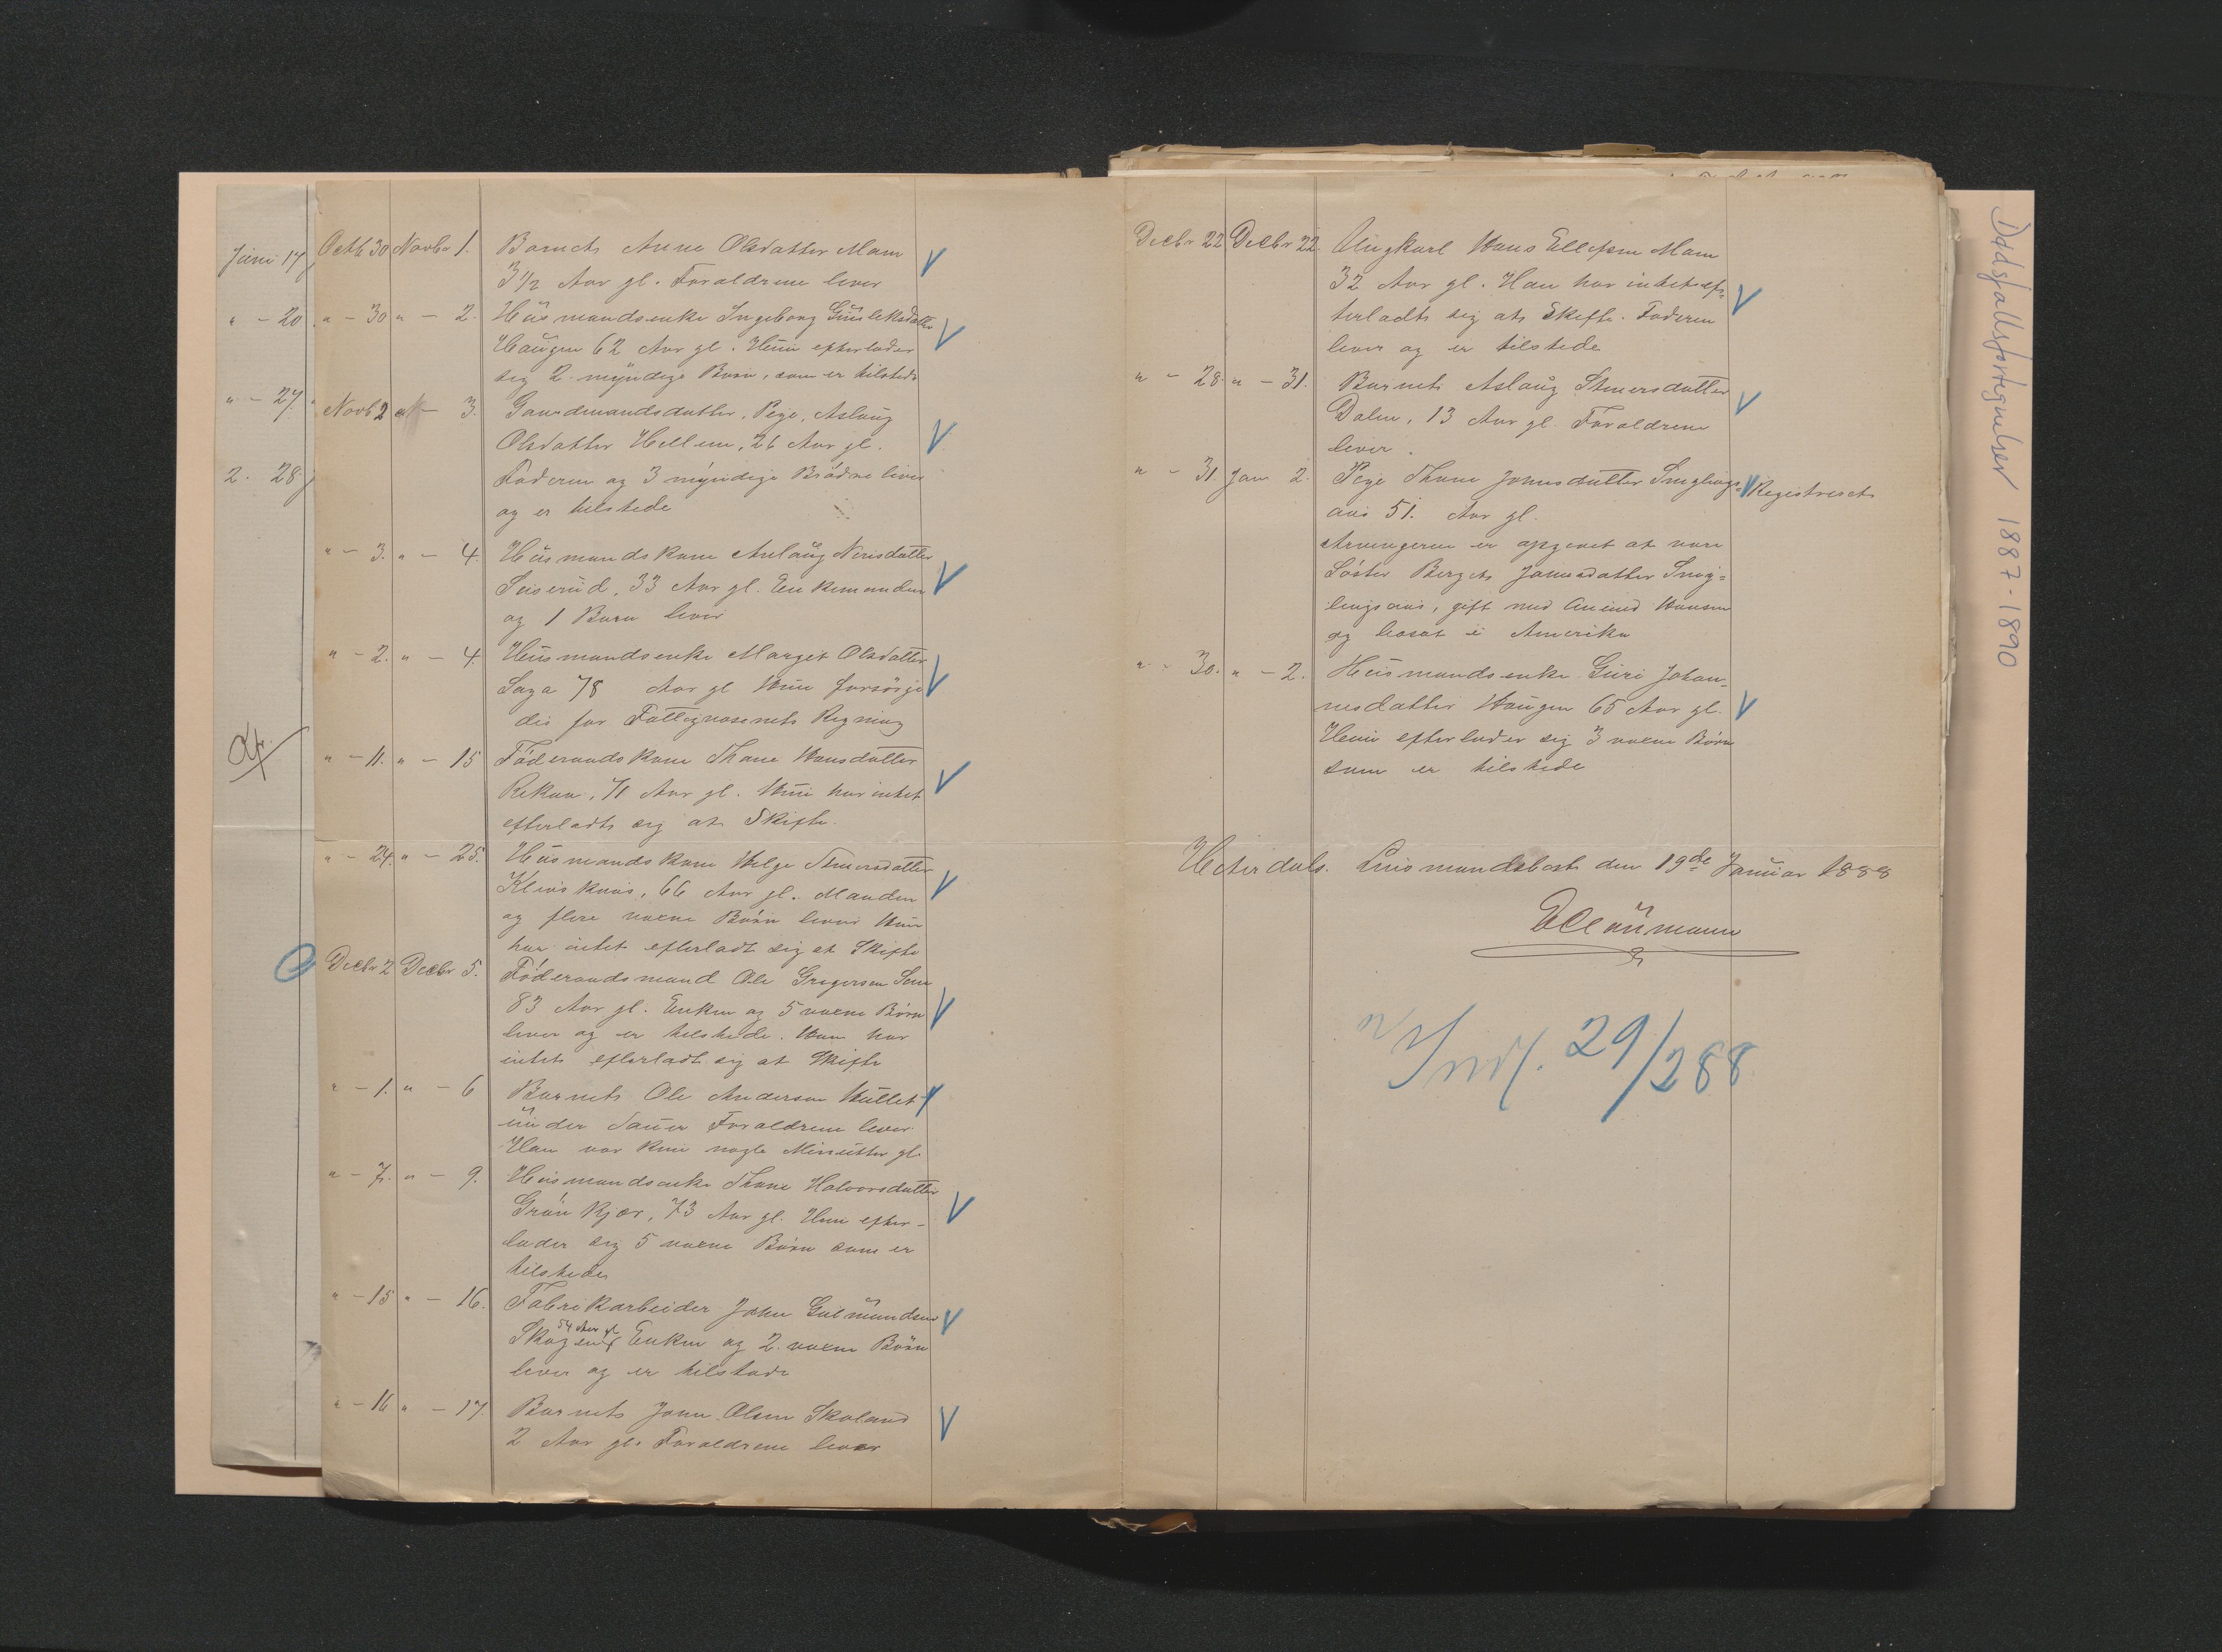 Juni 17
" - 20.
" - 27.
2. 28.
Octb 30 Novbr 1. Barnets Anne Olsdatter Mam
3 1/2 Aar gl. Foraldrene lever
" - 30 " - 2. Husmandsenke Ingeborg Gunleksdatter
Haugen 62 Aar gl. Hun efterlader
sig 2 myndige Børn, som er tilstede
Novb 2 " - 3. Gaardmandsdatter, Pige, Aslaug
Olsdatter Hellem, 26 Aar gl.
Faderen og 3 myndige Brødre lever
og er tilstede
" - 3. " - 4. Husmandskone Anlaug Nerisdatter
33 Aar gl. Enkemanden
og 1 Barn lever
" - 2. " - 4. Husmandsenke Marget Olsdatter
Saga 78 Aar gl Hun forsørge
des for Fattigvæsenets Regning
" - 11. " - 15 Föderaadskone Thone Hansdatter
71 Aar gl. Hun har intet
efterladt sig at Skifte.
" - 24. " - 25. Husmandskone Helge
66 Aar gl. Manden
og flere voxne Børn lever Hun
har intet efterladt sig at Skifte
Decbr 2 Decbr 5. Föderaadsmand Ole Gregersen Sem
83 Aar gl. Enken og 5 voxne Børn
lever og er tilstede. Han har
intet efterladt sig at Skifte
" - 1. " - 6 Barnets Ole Anderson Hullet
under Sauer Foraldrene lever.
Han var kun nogle Minutter gl.
" - 7. " - 9. Husmandsenke Thone Halvorsdatter
Grönkjær, 73 Aar gl. Hun efter-
lader sig 5 voxne Børn som er
tilstede
" - 15 " - 16. Fabrikarbeider John Gulmundsen
54 Aar gl
Skogen Enken og 2 voxne Börn
lever og er tilstede
" - 16 " - 17. Barnets John Olsen Skoland
2 Aar gl. Foraldrene lever
Decbr 22 Decbr 22. Ungkarl Hans Ellefsen Mam
32 Aar gl. Han har intet ef=
terladt sig at Skifte. Faderen
lever og er tilstede
" - 28. " - 31. Barnets Aslaug
Dalen, 13 Aar gl. Foraldrene
lever.
" - 31. Jan 2. Pige Thone Jonusdatter Registreret
51. Aar gl.
Arvingeren er opgivet at være
Søster Berget Jonusdatter
gift med Hansen
og bosat i Amerika
" - 30. " - 2. Husmandsenke Guri Johan=
nesdatter Haugen 65 Aar gl.
Hun efterlader sig 3 voxne Børn
som er tilstede
Heterdals Lensmandsbost. den 19de Januar 1888
Indf. 29/2 88
Dødsfallsfortegnelser 1887-1890